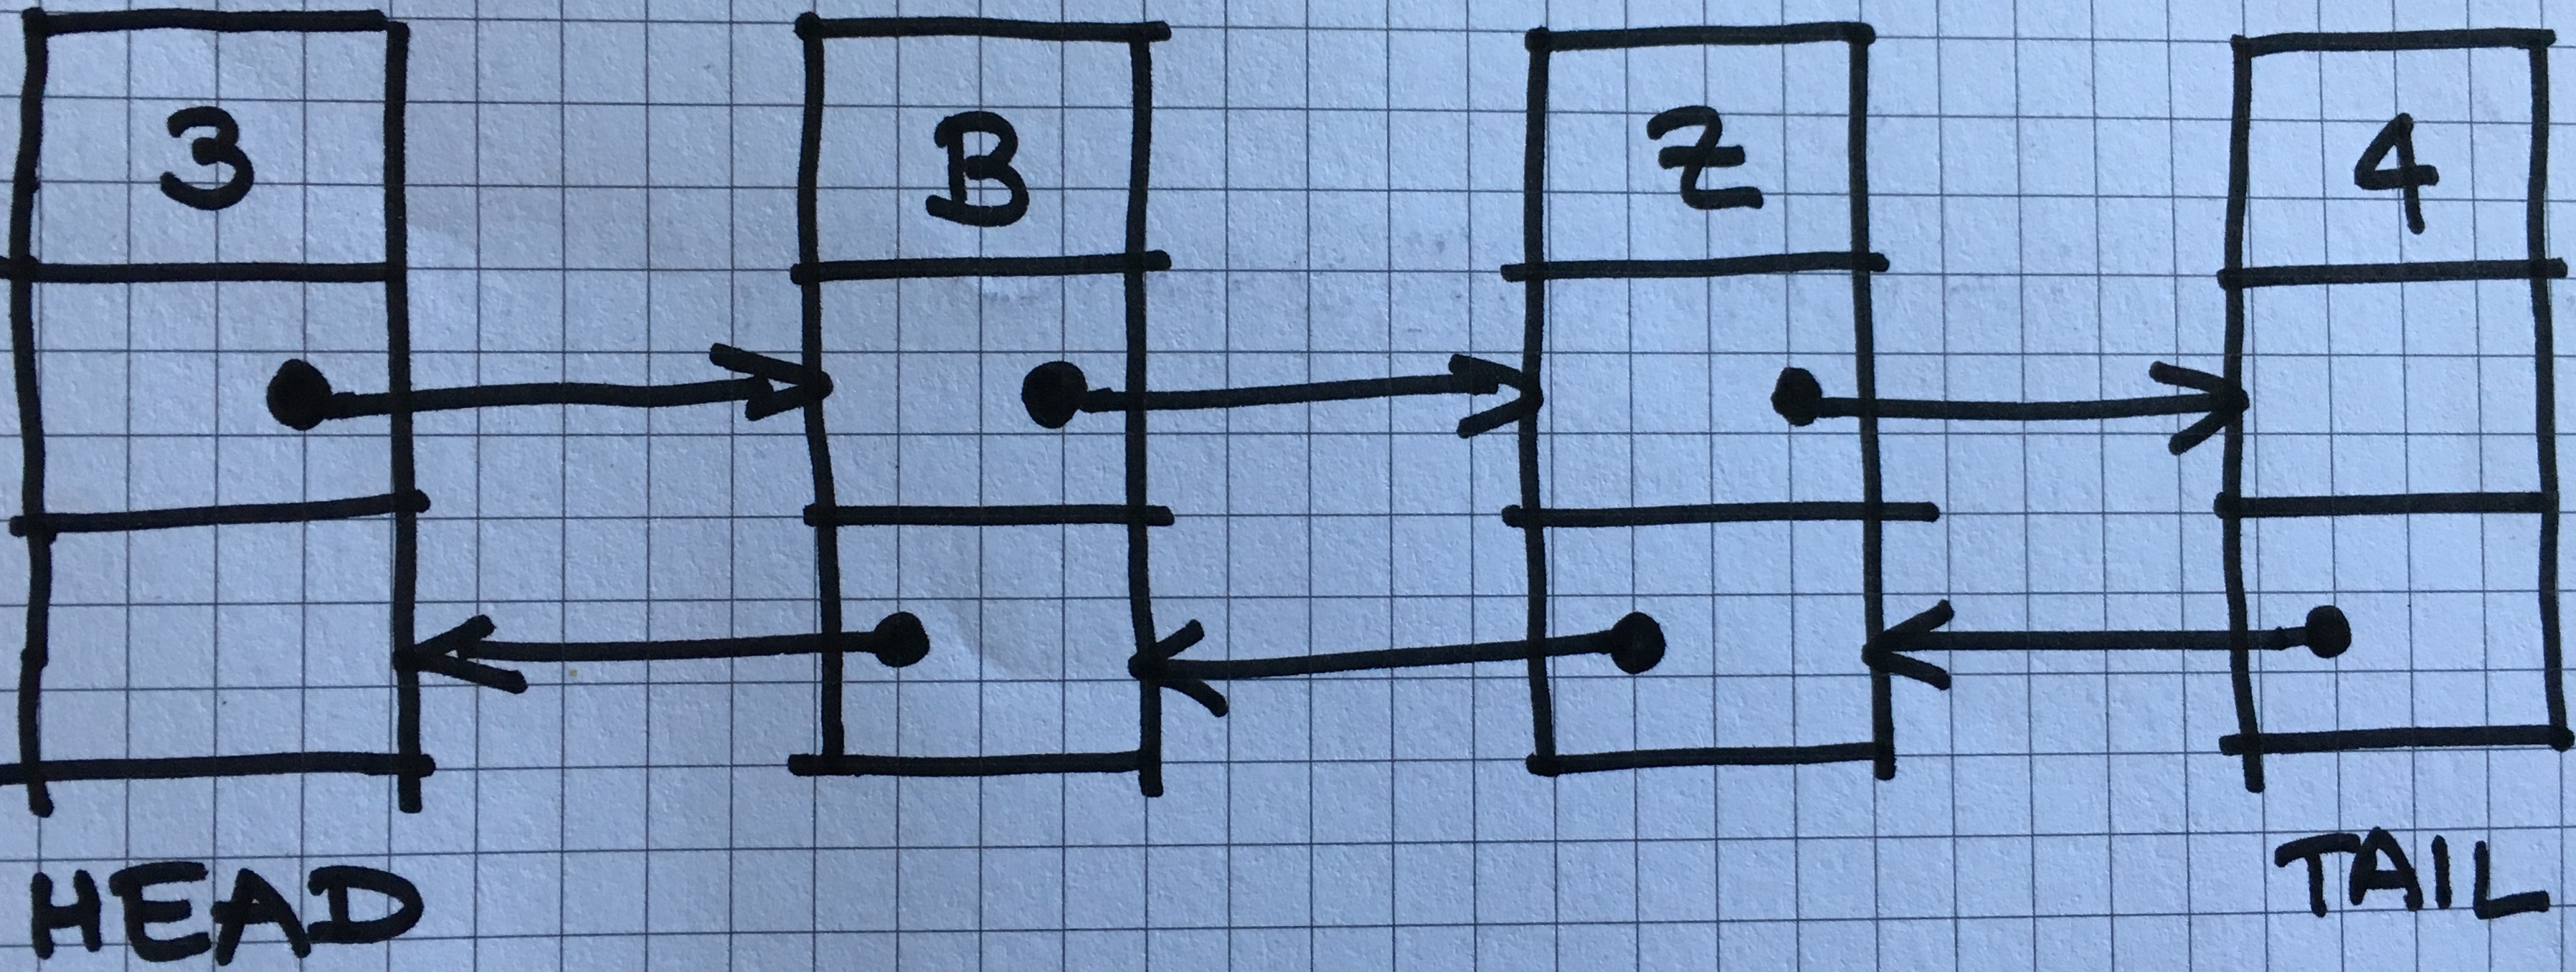 3 B Z 4
HEAD TAIL